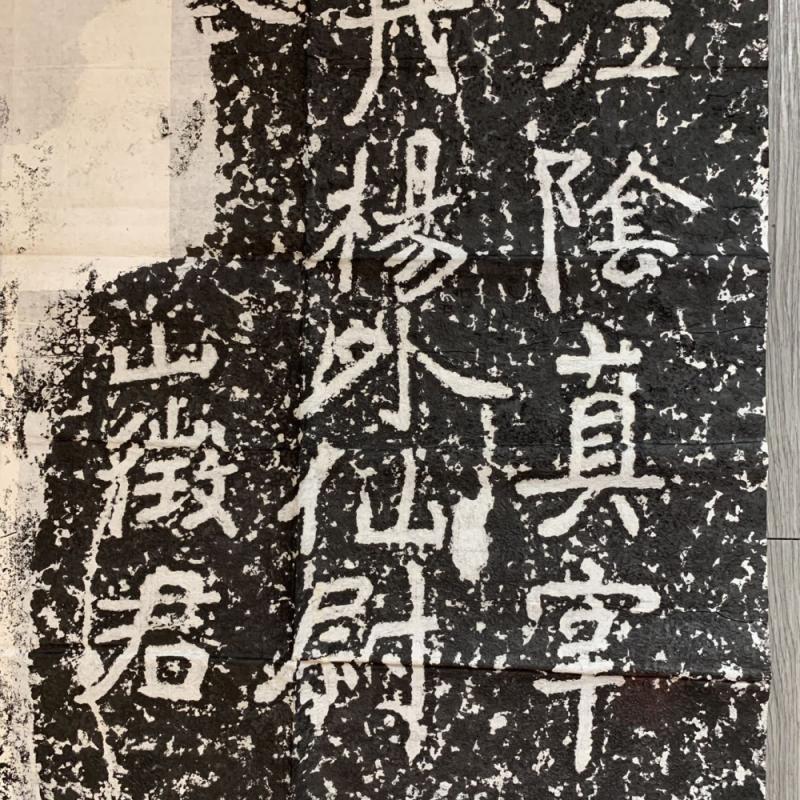 山徵君
丹楊外仙尉
江陰真宰